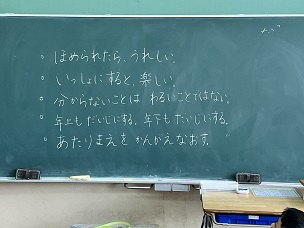 。ほめられたら、うれしい。
。いっしょにすると、楽しい。
。分からないことは わるいことではない。
。年上もだいじにする、年下もだいじにする。
。あたりまえを かんがえなおす。